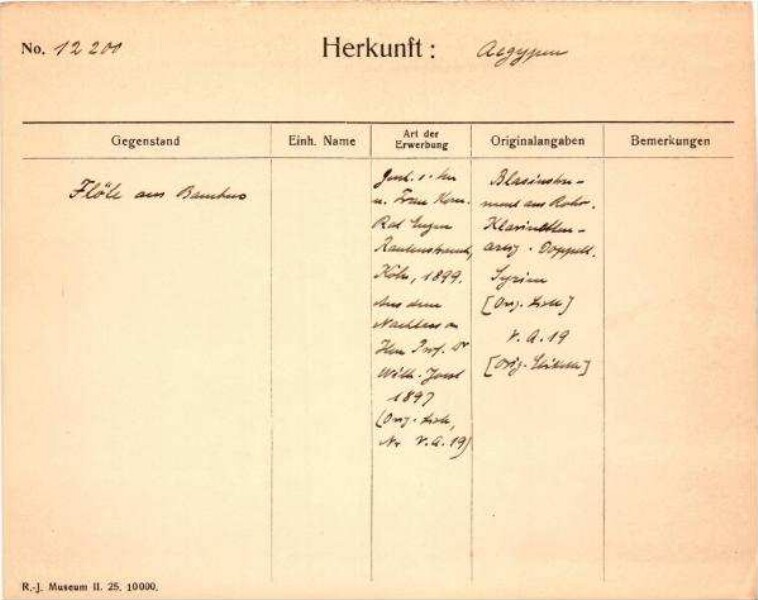 No. 12200
Herkunft: Aegypten
Gegenstand
Einh. Name
Art der Erwerbung
Originalangaben
Bemerkungen
Flöte aus Bambus
u. Frau Kom.
Rat Eugen
Rautenstrauch,
Köln, 1899.
Aus dem
Nachlass v
Herr Prof. Dr
Wilh. Joest
1897
(Orig. Liste,
Nr V.A.19)
Blasinstru-
ment aus Rohr.
Klarinetten-
artig. Doppelt.
Syrien
[Orig. Liste]
V.A.19
[Orig. Etikette]
R.-J. Museum II. 25. 10000.